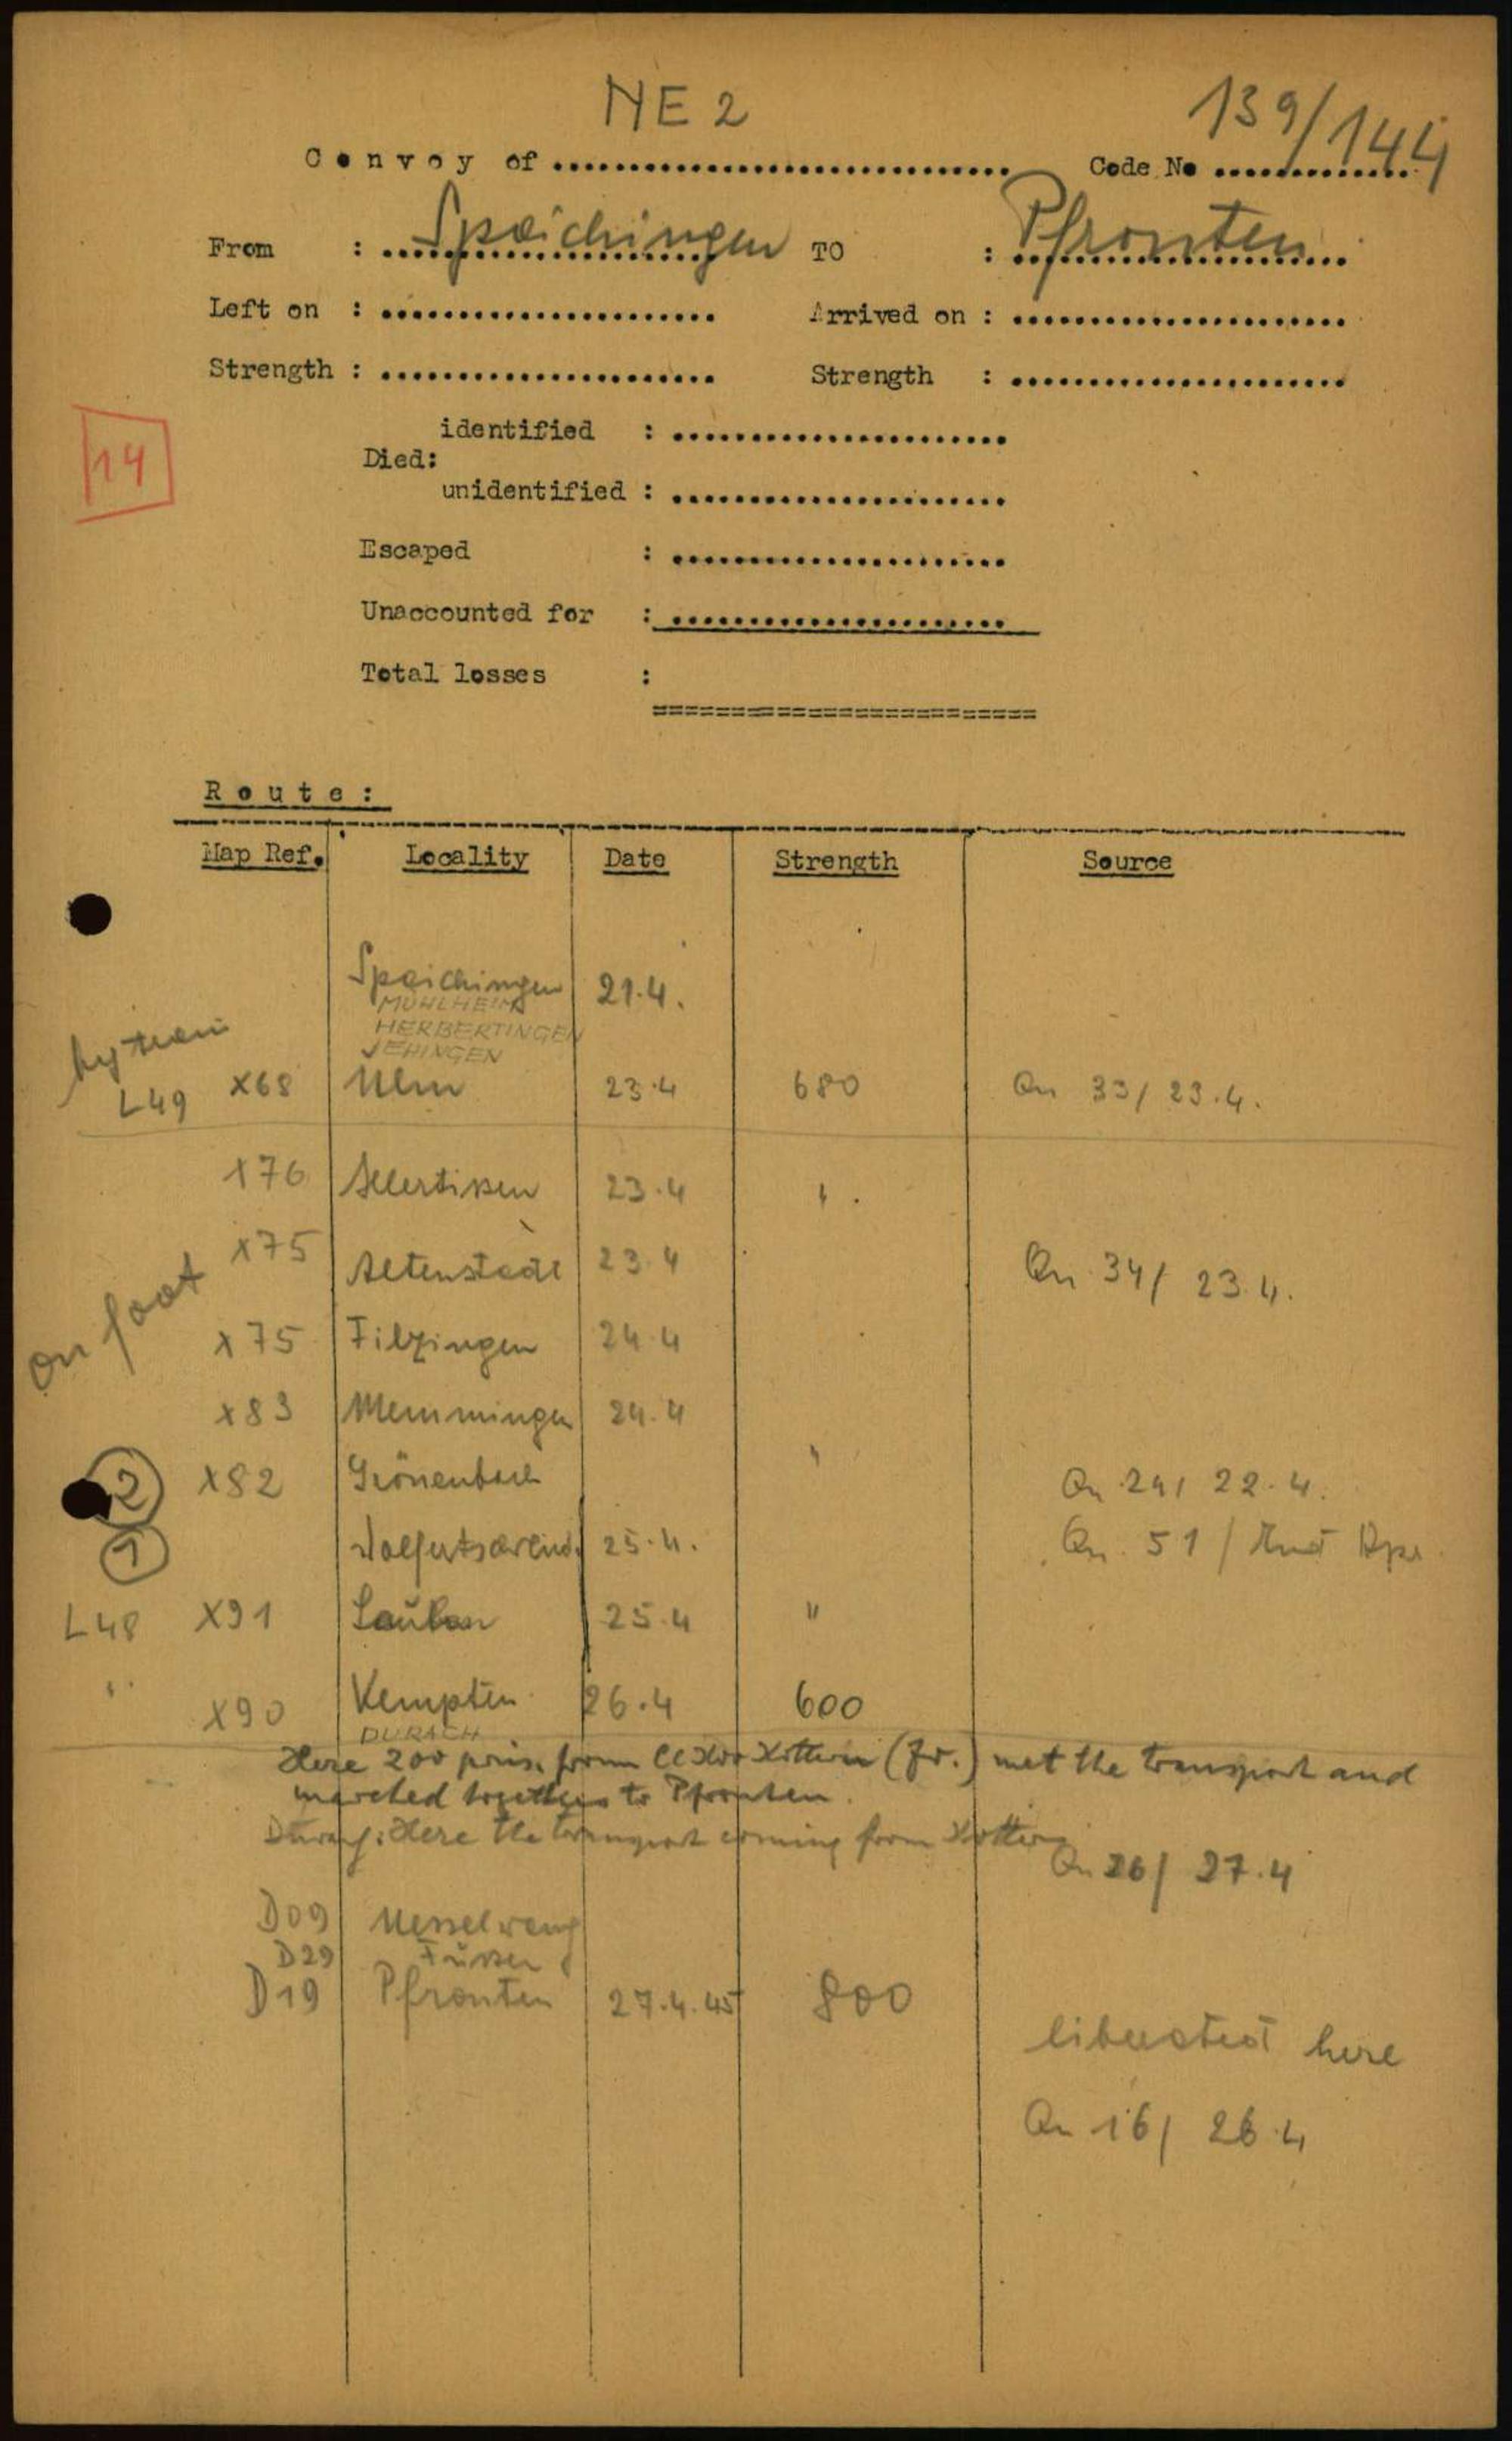 NE 2
139/144
Convoy of .............................. Code No ..............
From : Spaichingen TO : Pfronten
Left on : ...................... Arrived on : ......................
Strength : ...................... Strength : ......................
14
identified : ......................
Died:
unidentified : ......................
Escaped : ......................
Unaccounted for : ......................
Total losses :
=========================
Route:
Map Ref. Locality Date Strength Source
Spaichingen 21.4.
MÜHLHEIM
HERBERTINGEN
EHINGEN
by train
L49 X68 Ulm 23.4 680 Qu 33/ 23.4.
X76 Illertissen 23.4 "
X75 Altenstadt 23.4 Qu 34/ 23.4.
on foot
X75 Filzingen 24.4
X83 Memmingen 24.4
2 X82 Grönenbach " Qu 24/ 22.4.
1 25.4. Qu. 51/
L48 X91 Lauben 25.4 "
" X90 Kempten 26.4 600
DURACH
Here 200 pris. from Kottern (Fr.) met the transport and
marched together to Pfronten.
Durach: Here the transport coming from Kottern
Qu 26/ 27.4
D09 Nesselwang
D29 Füssen
D19 Pfronten 27.4.45 800
liberated here
Qu 16/ 26.4